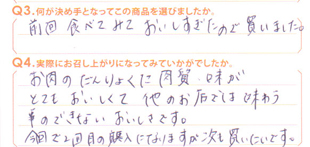 Q3.何が決め手となってこの商品を選びましたか。
前回食べてみておいしすぎたので買いました。
Q4.実際にお召し上がりになってみていかがでしたか。
お肉のだんりょくだ肉質・味が
とてもおいしくて他のお店では味わう
事のできないおいしさです。
今回で2回目の購入になりますが次も買いたいです。